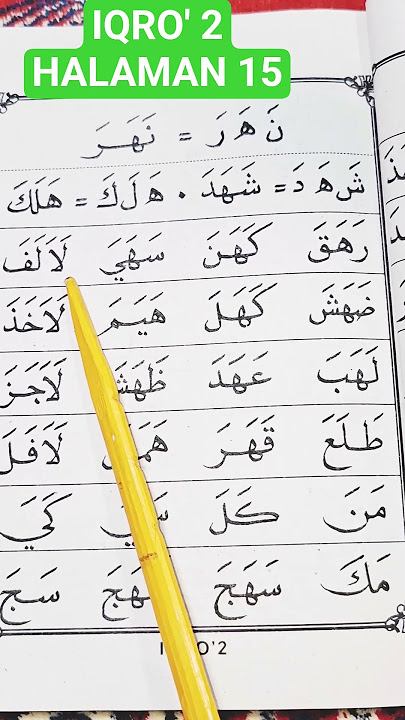 IQRO' 2
HALAMAN 15
نَ هَ رَ = نَهَرَ
شَ هَ دَ = شَهَدَ . هَ لَ كَ = هَلَكَ
رَهَقَ كَهَنَ سَهَيَ لَالَفَ
ضَهَشَ كَهَلَ هَيَمَ لَاخَذَ
لَهَبَ عَهَدَ لَاجَزَ
طَلَعَ قَهَرَ لَافَلَ
مَنَ كَلَ كَيَ
مَكَ سَهَجَ سَجَ